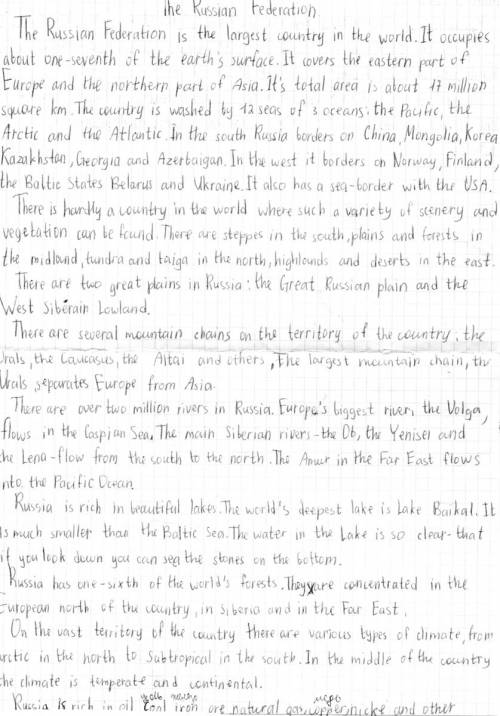 The Russian Federation.
The Russian Federation is the largest country in the world. It occupies
about one-seventh of the earth's surface. It covers the eastern part of
Europe and the northern part of Asia. It's total area is about 17 million
square km. The country is washed by 12 seas of 3 oceans: the Pacific, the
Arctic and the Atlantic. In the south Russia borders on China, Mongolia, Korea
Kazakhstan, Georgia and Azerbaigan. In the west it borders on Norway, Finland,
the Baltic States Belarus and Ukraine. It also has a sea-border with the USA.
There is hardly a country in the world where such a variety of scenery and
vegetation can be found. There are steppes in the south, plains and forests in
the midland, tundra and taiga in the north, highlands and deserts in the east.
There are two great plains in Russia: the Great Russian plain and the
West Siberain Lowland.
There are several mountain chains on the territory of the country: the
Urals, the Caucasus, the Altai and others. The largest mountain chain, the
Urals, separates Europe from Asia.
There are over two million rivers in Russia. Europe's biggest river, the Volga,
flows in the Caspian Sea. The main Siberian rivers - the Ob, the Yenisei and
the Lena - flow from the south to the north. The Amur in the Far East flows
into the Pacific Ocean.
Russia is rich in beautiful lakes. The world's deepest lake is Lake Baikal. It
is much smaller than the Baltic Sea. The water in the Lake is so clear that
if you look down you can see the stones on the bottom.
Russia has one-sixth of the world's forests. They are concentrated in the
European north of the country, in Siberia and in the Far East.
On the vast territory of the country there are various types of climate, from
arctic in the north to subtropical in the south. In the middle of the country
the climate is temperate and continental.
Russia is rich in oil, coal, iron ore, natural gas, copper, nickle and other